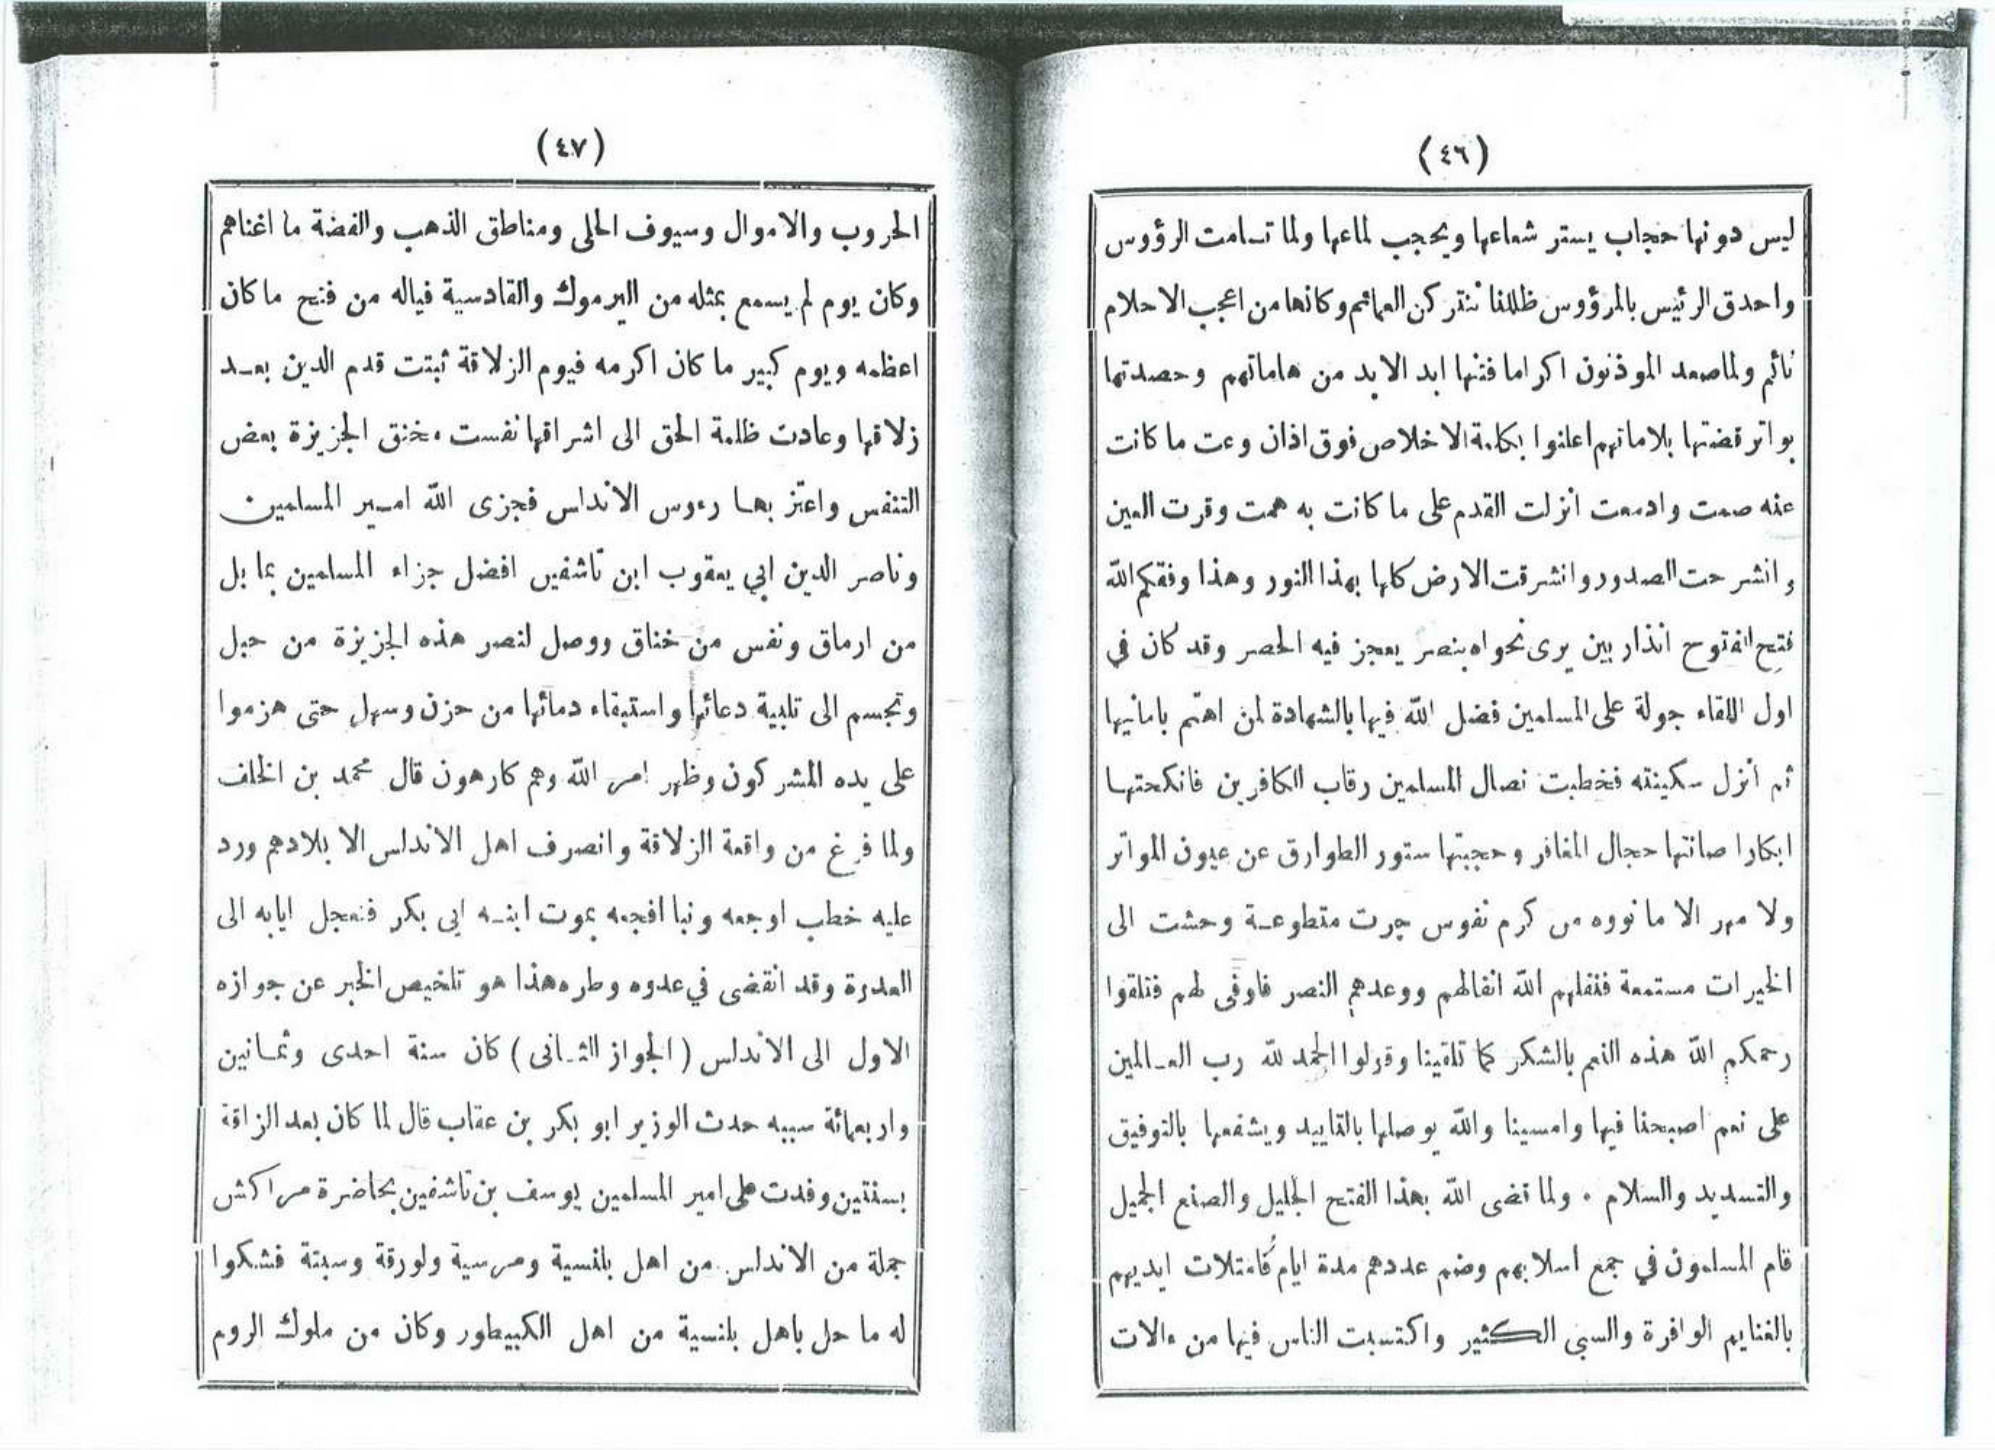 (٤٦)
ليس دونها حجاب يستر شعاعها ويحجب لماعها ولما تسامت الرؤوس
واحدق الرئيس بالمرؤوس ظللنا نتركن العمائم وكانها من اعجب الاحلام
نائم ولما صعد الموذنون اكراما فتنها ابد الابد من هاماتهم وحصدتها
بواتر قضتها بلاماتهم اعلنوا بكلمة الاخلاص فوق اذان وعت ما كانت
عنه صمت وادمعت انزلت القدم على ما كانت به همت وقرت العين
وانشرحت الصدور وانشرقت الارض كلها بهذا النور وهذا وفقكم الله
فتح الفتوح انذار بين يرى نحواه بنصر يعجز فيه الحصر وقد كان في
اول اللقاء جولة على المسلمين فضل الله فيها بالشهادة لمن اهتم بامانيها
ثم انزل سكينته فخطبت نصال المسلمين رقاب الكافرين فانكحتها
ابكارا صانتها حجال المغافر وحجبتها ستور الطوارق عن عيون المواتر
ولا مهر الا ما نووه من كرم نفوس جرت متطوعة وحشت الى
الخيرات مستمعة فنفلهم الله انفالهم ووعدهم النصر فاوفى لهم فتلقوا
رحمكم الله هذه النعم بالشكر كما تلقينا وقولوا الحمد لله رب العالمين
على نعم اصبحنا فيها وامسينا والله يوصلها بالتاييد ويشفعها بالتوفيق
والتسديد والسلام . ولما قضى الله بهذا الفتح الجليل والصنع الجميل
قام المسلمون في جمع اسلابهم وضم عددهم مدة ايام فامتلات ايديهم
بالغنايم الوافرة والسبى الكثير واكتسبت الناس فيها من ءالات
(٤٧)
الحروب والاموال وسيوف الحلى ومناطق الذهب والفضة ما اغناهم
وكان يوم لم يسمع بمثله من اليرموك والقادسية فياله من فتح ما كان
اعظمه ويوم كبير ما كان اكرمه فيوم الزلاقة ثبتت قدم الدين بعد
زلاقها وعادت ظلمة الحق الى اشراقها نفست مخنق الجزيزة بعض
التنفس واعتز بها رءوس الاندلس فجزى الله امير المسلمين
وناصر الدين ابي يعقوب ابن تاشفين افضل جزاء المسلمين بما بل
من ارماق ونفس من خناق ووصل لنصر هذه الجزيزة من حبل
وتجسم الى تلبية دعائها واستبقاء دمائها من حزن وسهل حتى هزموا
على يده المشركون وظهر امر الله وهم كارهون قال محمد بن الخلف
ولما فرغ من واقعة الزلاقة وانصرف اهل الاندلس الا بلادهم ورد
عليه خطب اوجعه ونبا افجعه بموت ابنه ابى بكر فتعجل ايابه الى
العدوة وقد انقضى في عدوه وطره هذا هو تلخيص الخبر عن جوازه
الاول الى الاندلس (الجواز الثانى) كان سنة احدى وثمانين
واربعمائة سببه حدث الوزير ابو بكر بن عقاب قال لما كان بعد الزلاقة
بسنتين وفدت على امير المسلمين يوسف بن تاشفين بحاضرة مراكش
جملة من الاندلس من اهل بلنسية ومرسية ولورقة وسبتة فشكوا
له ما حل باهل بلنسية من اهل الكبيطور وكان من ملوك الروم